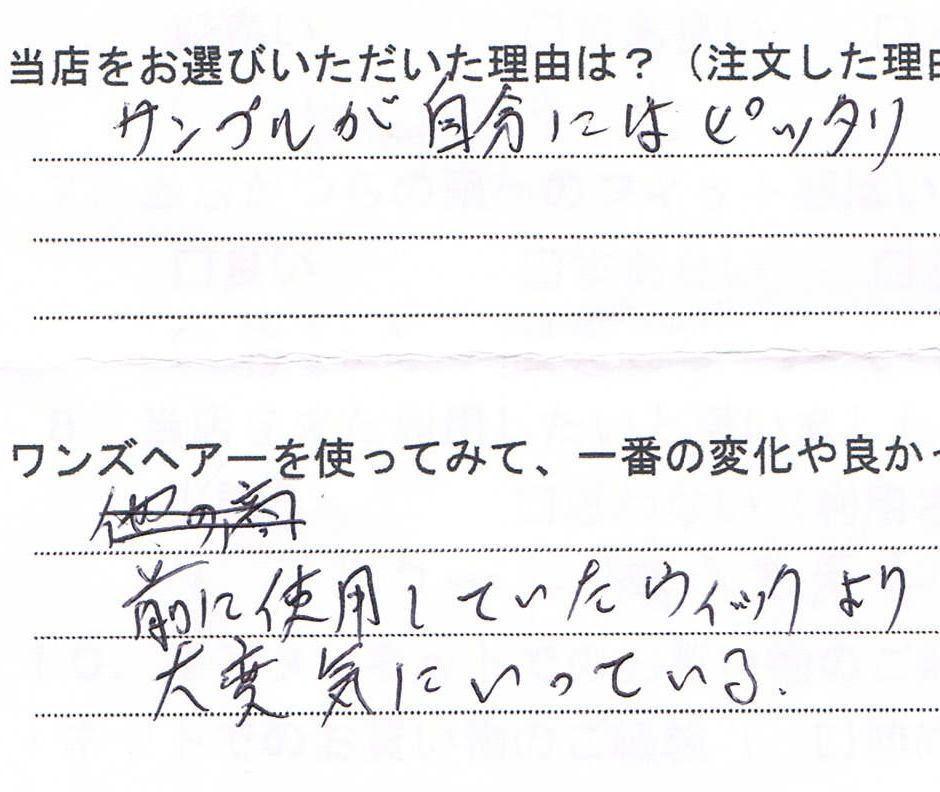 当店をお選びいただいた理由は？（注文した理由
サンプルが自分にはピッタリ
ワンズヘアーを使ってみて、一番の変化や良かっ
他の商
前に使用していたウィックより
大変気にいっている.